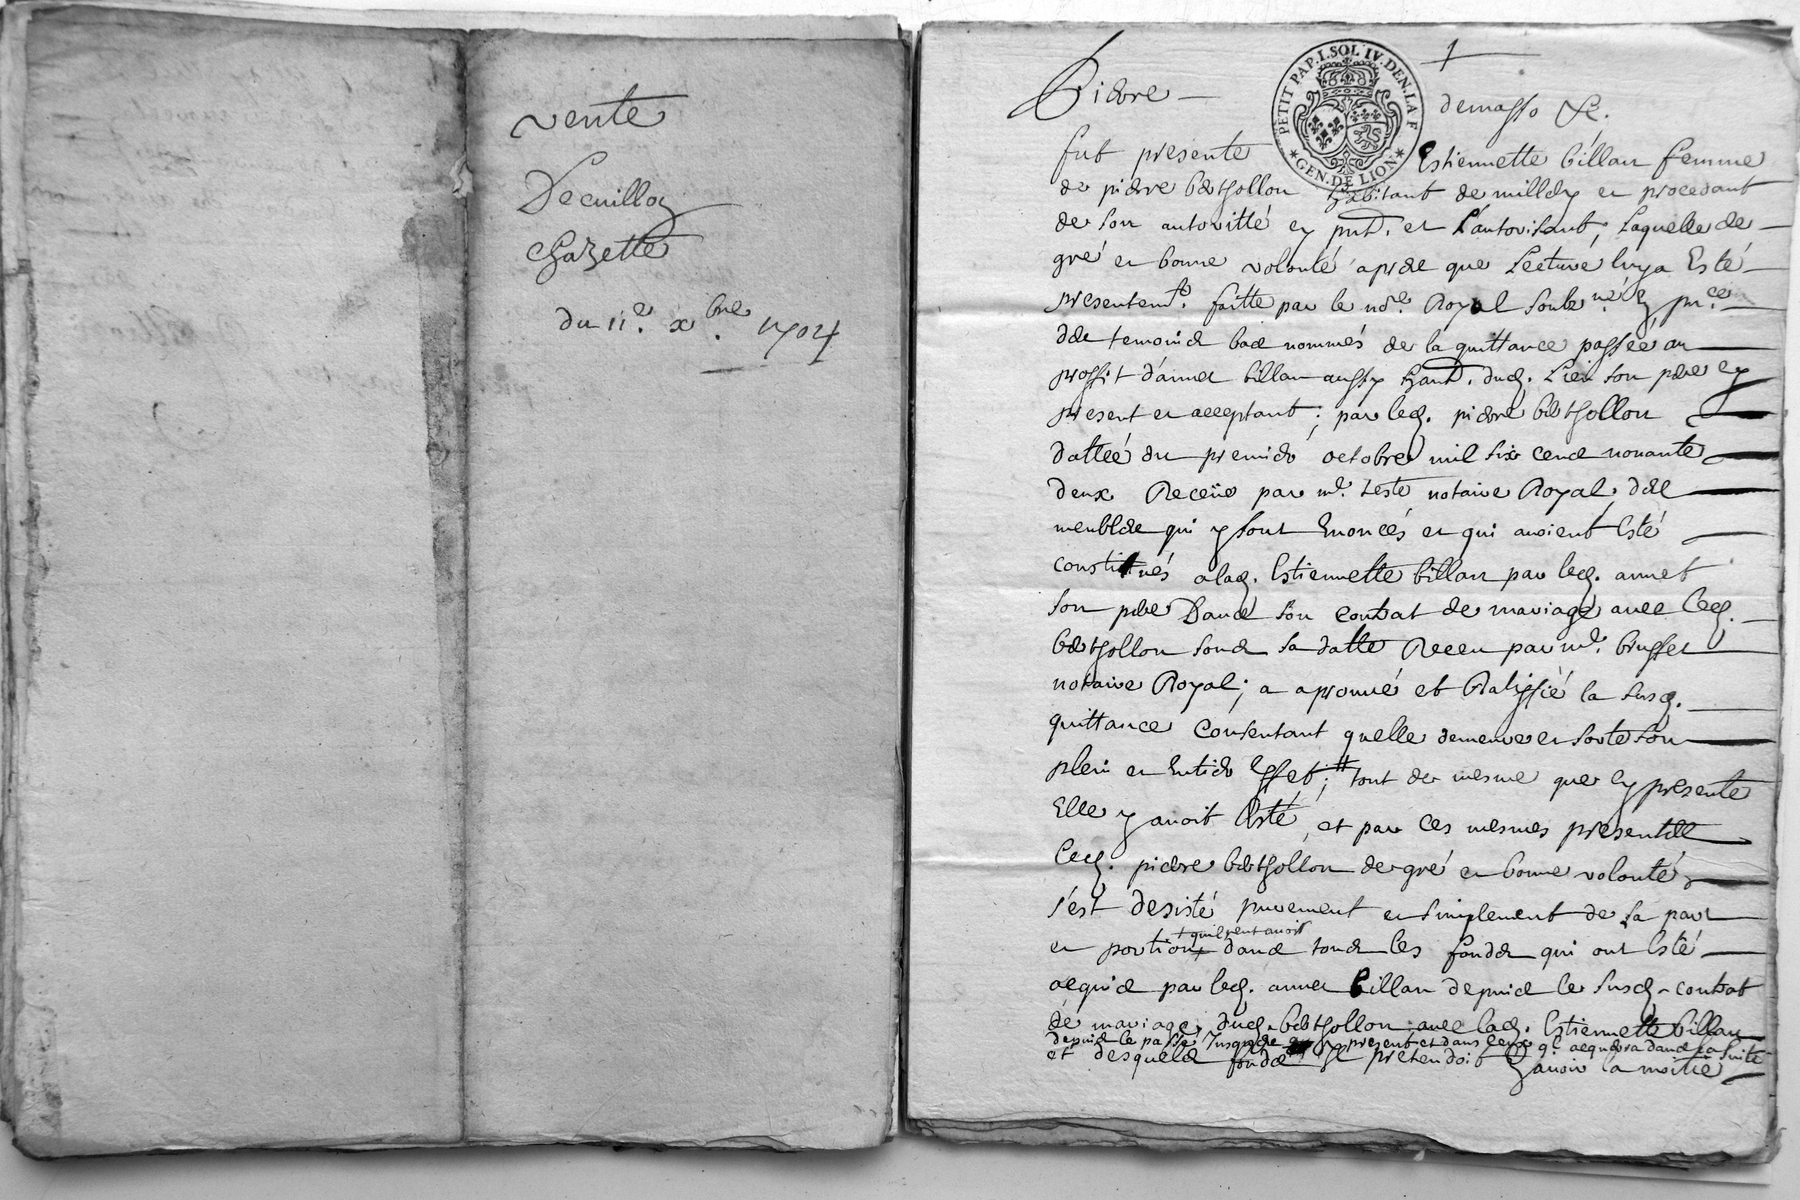 vente
Decuilloy
chazette
du 11e. xbre. 1704
1
PETIT PAP. I. SOL IV. DEN. LA F
GEN. DE LION
Pierre
demasso &c.
fut presente Estiennette billan femme
de pierre berthollon habitant de millery et procedant
de son autoritté cy pnt. et l'autorisant, laquelle de
gré et bonne volonté apres que Lecture luy a Esté
presentemt. faitte par le nore. Royal soubz.né Ey pnce
des temoins bas nommés de la quittance passée au
proffit d'annet billan aussy habt. dud. Lieu son pere cy
present et acceptant; par led. pierre berthollon
dattéé du premier octobre mil six cens nonante
deux Receüe par me. teste notaire Royal, des
meubles qui y sont Enoncés et qui avoient Esté
constitués a lad. Estiennette billan par led. annet
son pere Dans son contrat de mariage avec led.
berthollon sous sa datte Receu par me. brusset
notaire Royal; a aprouvé et Ratiffié la susd.
quittance consentant quelle demeure et sorte son
plein et Entier Effet; # tout de mesme que cy presente
Elle y avoit Esté, et par ces mesmes presentes
led. pierre berthollon de gré et bonne volonté
s'est desisté purement et simplement de sa part
+ quil peut avoir
et portion + dans tous les fonds qui ont Esté
acquis par led. annet billan depuis le susd. contrat
de mariage dud. berthollon avec lad. Estiennette billan
depuis le passé Jusques a present et dans ceux ql. acquerra dans la suite
et desquels fonds Il pretendoit avoir la moitié